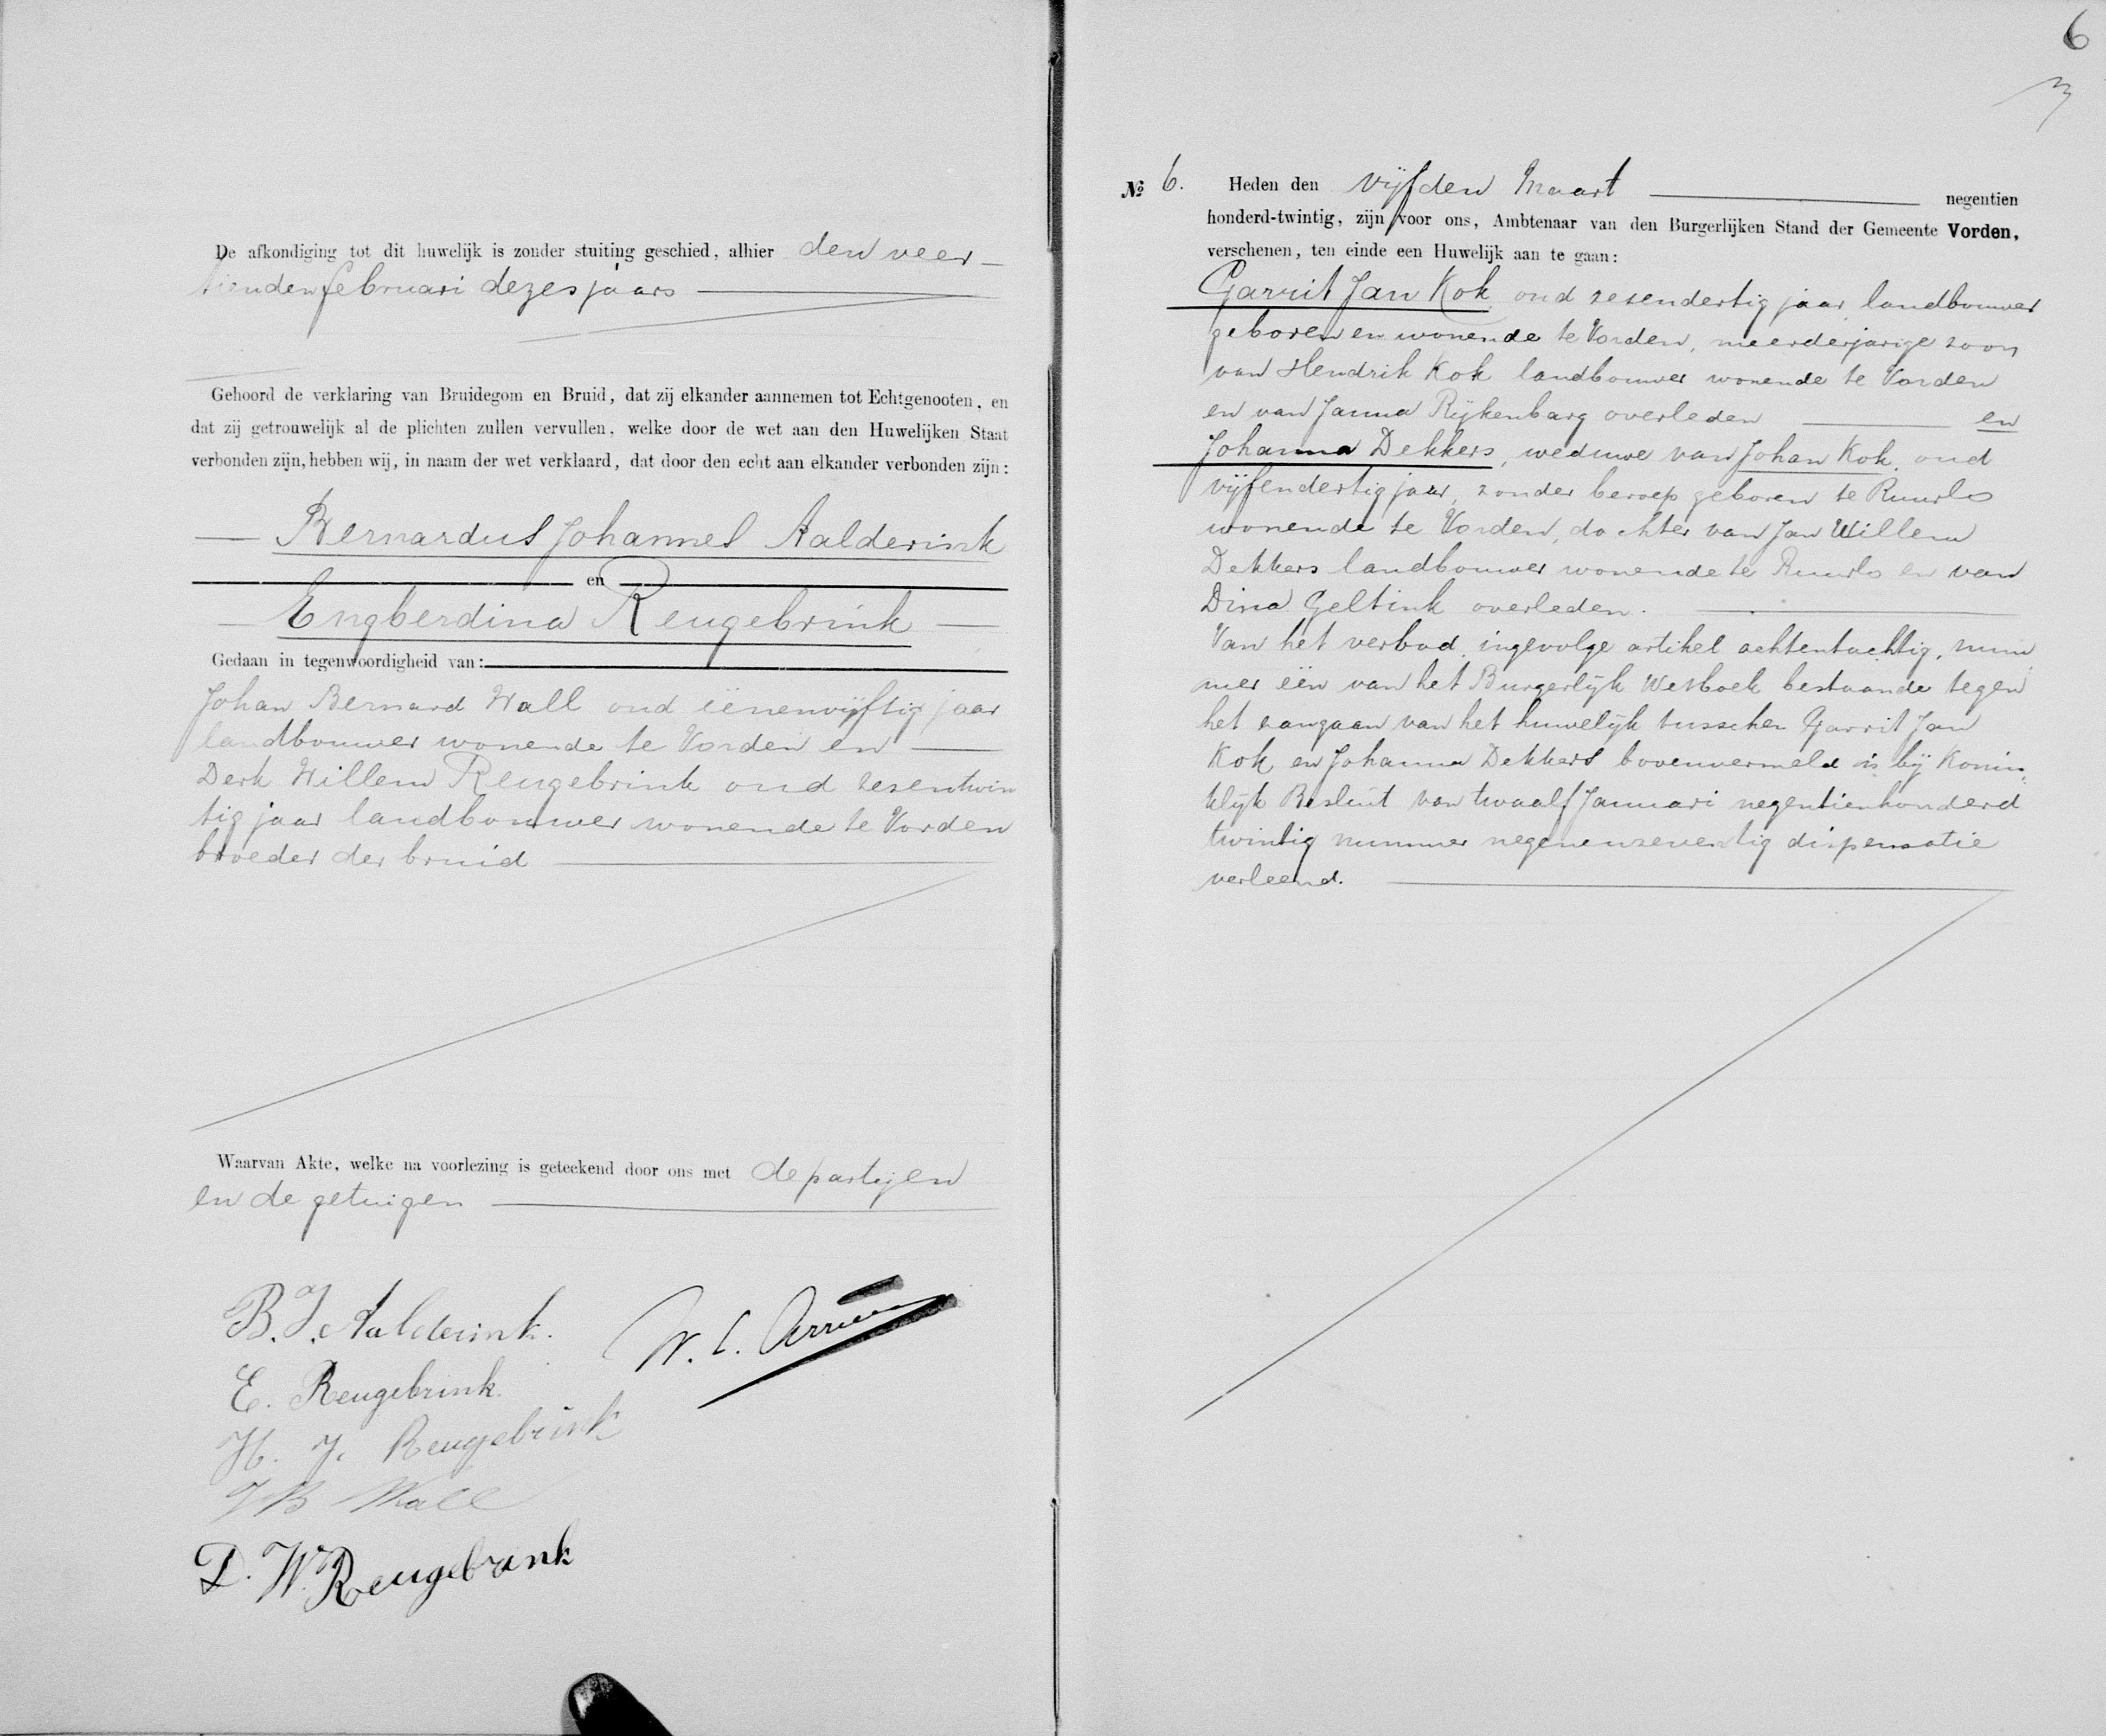 De afkondiging tot dit huwelijk is zonder stuiting geschied, alhier den veer-
tienden februari dezes jaars
Gehoord de verklaring van Bruidegom en Bruid, dat zij elkander aannemen tot Echtgenooten, en
dat zij getrouwelijk al de plichten zullen vervullen, welke door de wet aan den Huwelijken Staat
verbonden zijn, hebben wij, in naam der wet verklaard, dat door den echt aan elkander verbonden zijn:
Bernardus Johannes Aalderink
en
Engberdina Reugebrink
Gedaan in tegenwoordigheid van:
Johan Bernard Wall oud éénenvijftig jaar
landbouwer wonende te Vorden en
Derk Willem Reugebrink oud zesentwin
tig jaar landbouwer wonende te Vorden
broeder der bruid
Waarvan Akte, welke na voorlezing is geteekend door ons met de partijen
en de getuigen
B. J. Aalderink.
W. C.
E. Reugebrink.
H. J. Reugebrink
J B Wall
D. W. Reugebrink
6
№ 6. Heden den vijfden Maart negentien
honderd-twintig, zijn voor ons, Ambtenaar van den Burgerlijken Stand der Gemeente Vorden,
verschenen, ten einde een Huwelijk aan te gaan:
Garrit Jan Kok oud zesendertig jaar landbouwer
geboren en wonende te Vorden, meerderjarige zoon
van Hendrik Kok landbouwer wonende te Vorden
en van Janna Rijkenbarg overleden en
Johanna Dekkers, weduwe van Johan Kok, oud
vijfendertig jaar, zonder beroep geboren te Ruurlo
wonende te Vorden, dochter van Jan Willem
Dekkers landbouwer wonende te Ruurlo en van
Dina Geltink overleden.
Van het verbod, ingevolge artikel achtentachtig, num
mer één van het Burgerlijk Wetboek bestaande tegen
het aangaan van het huwelijk tusschen Garrit Jan
Kok en Johanna Dekkers bovenvermeld is bij Konin
klijk Besluit van twaalf Januari negentienhonderd
twintig nummer negenenzeventig dispensatie
verleend.